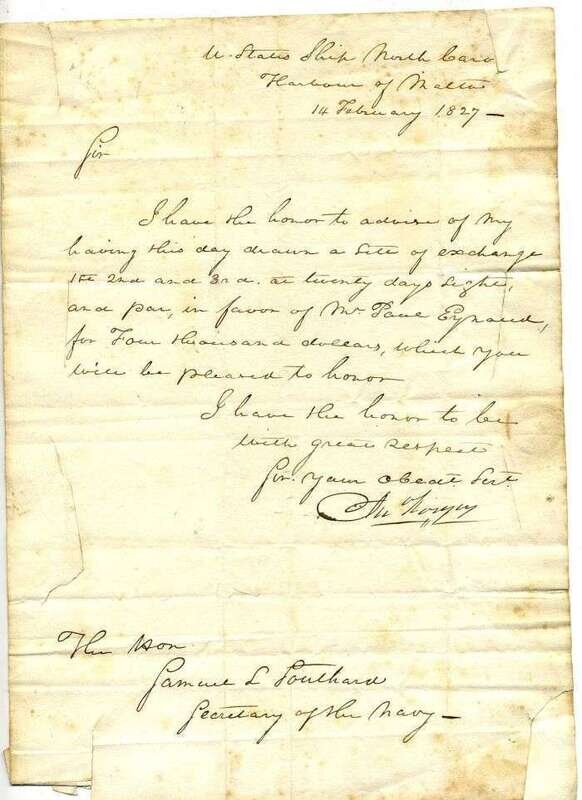 U. States Ship North Caro
Harbour of Malta
14 February 1827 —
Sir
I have the honor to advise of my
having this day drawn a Sett of exchange
1st 2nd and 3rd. at twenty days Sight,
and par, in favor of Mr Paul Eynaud,
for Four thousand dollars, which you
will be pleased to honor
I have the honor to be
with great respect
Sir. your obedt Sert.
The Hon
Samuel L Southard
Secretary of the Navy —